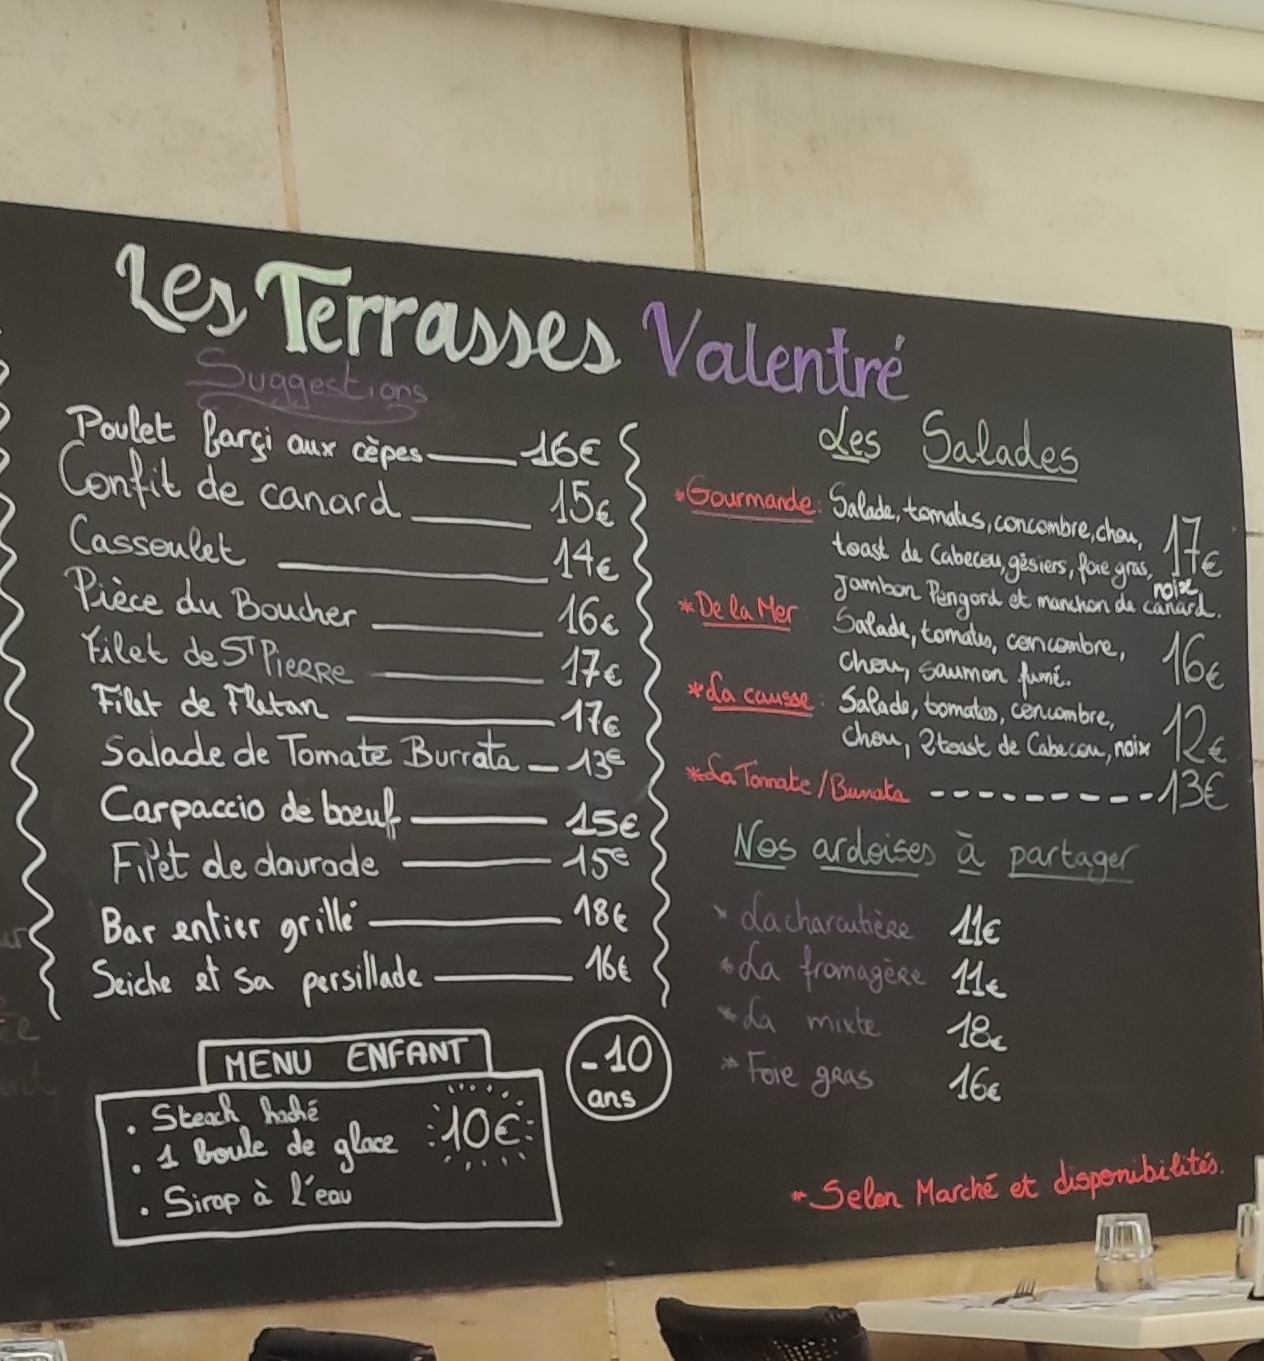 Les Terrasses Valentré
Suggestions
Poulet farçi aux cèpes 16€
Confit de canard 15€
Cassoulet 14€
Pièce du Boucher 16€
Filet de ST PIERRE 17€
Filet de Fletan 17€
Salade de Tomate Burrata 13€
Carpaccio de boeuf 15€
Filet de daurade 15€
Bar entier grillé 18€
Seiche et sa persillade 16€
MENU ENFANT
- 10
ans
. Steack haché
. 1 boule de glace
. Sirop à l'eau
10€
Les Salades
*Gourmande: Salade, tomates, concombre, chou,
toast de Cabecou, gésiers, foie gras, 17€
noix
Jambon Perigord et manchon de canard.
*De la Mer Salade, tomates, concombre, 16€
chou, saumon fumé.
*La causse: Salade, tomates, concombre, 12€
chou, 2 toast de Cabecou, noix
*La Tomate/Burrata ---------- 13€
Nos ardoises à partager
* La charcutière 11€
* La fromagère 11€
* La mixte 18€
* Foie gras 16€
* Selon Marché et disponibilités.